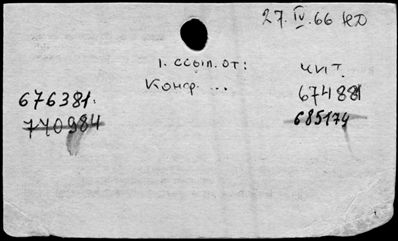 27.IV.66 КД
1. ссыл. от: чит.
Конф. ...
676381. 674881
770984 685174